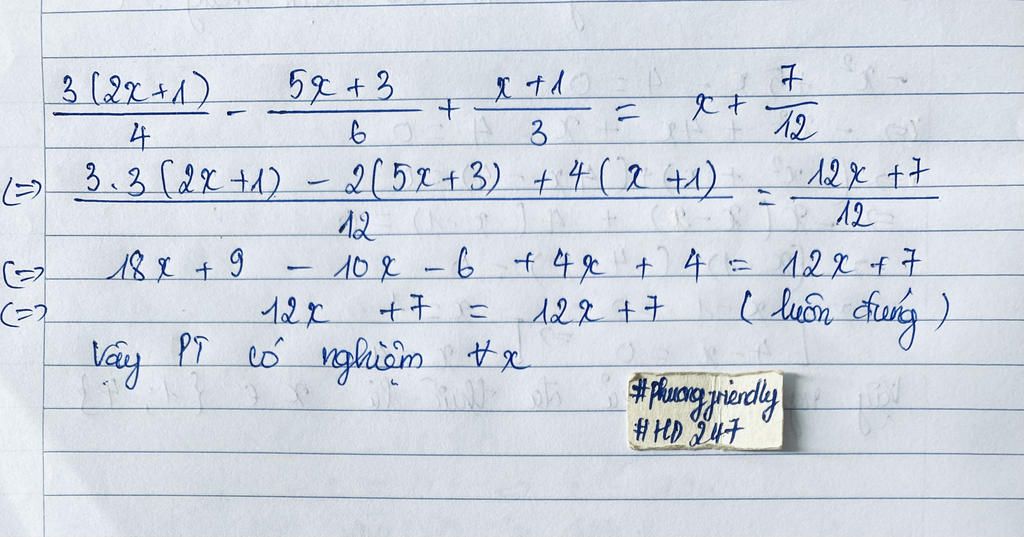 3(2x+1)/4 - 5x+3/6 + x+1/3 = x + 7/12
(=) 3.3(2x+1) - 2(5x+3) + 4(x+1)/12 = 12x+7/12
(=) 18x + 9 - 10x - 6 + 4x + 4 = 12x + 7
(=) 12x + 7 = 12x + 7 (luôn đúng)
Vậy PT có nghiệm ∀x
#phuongfriendly
#HD 247